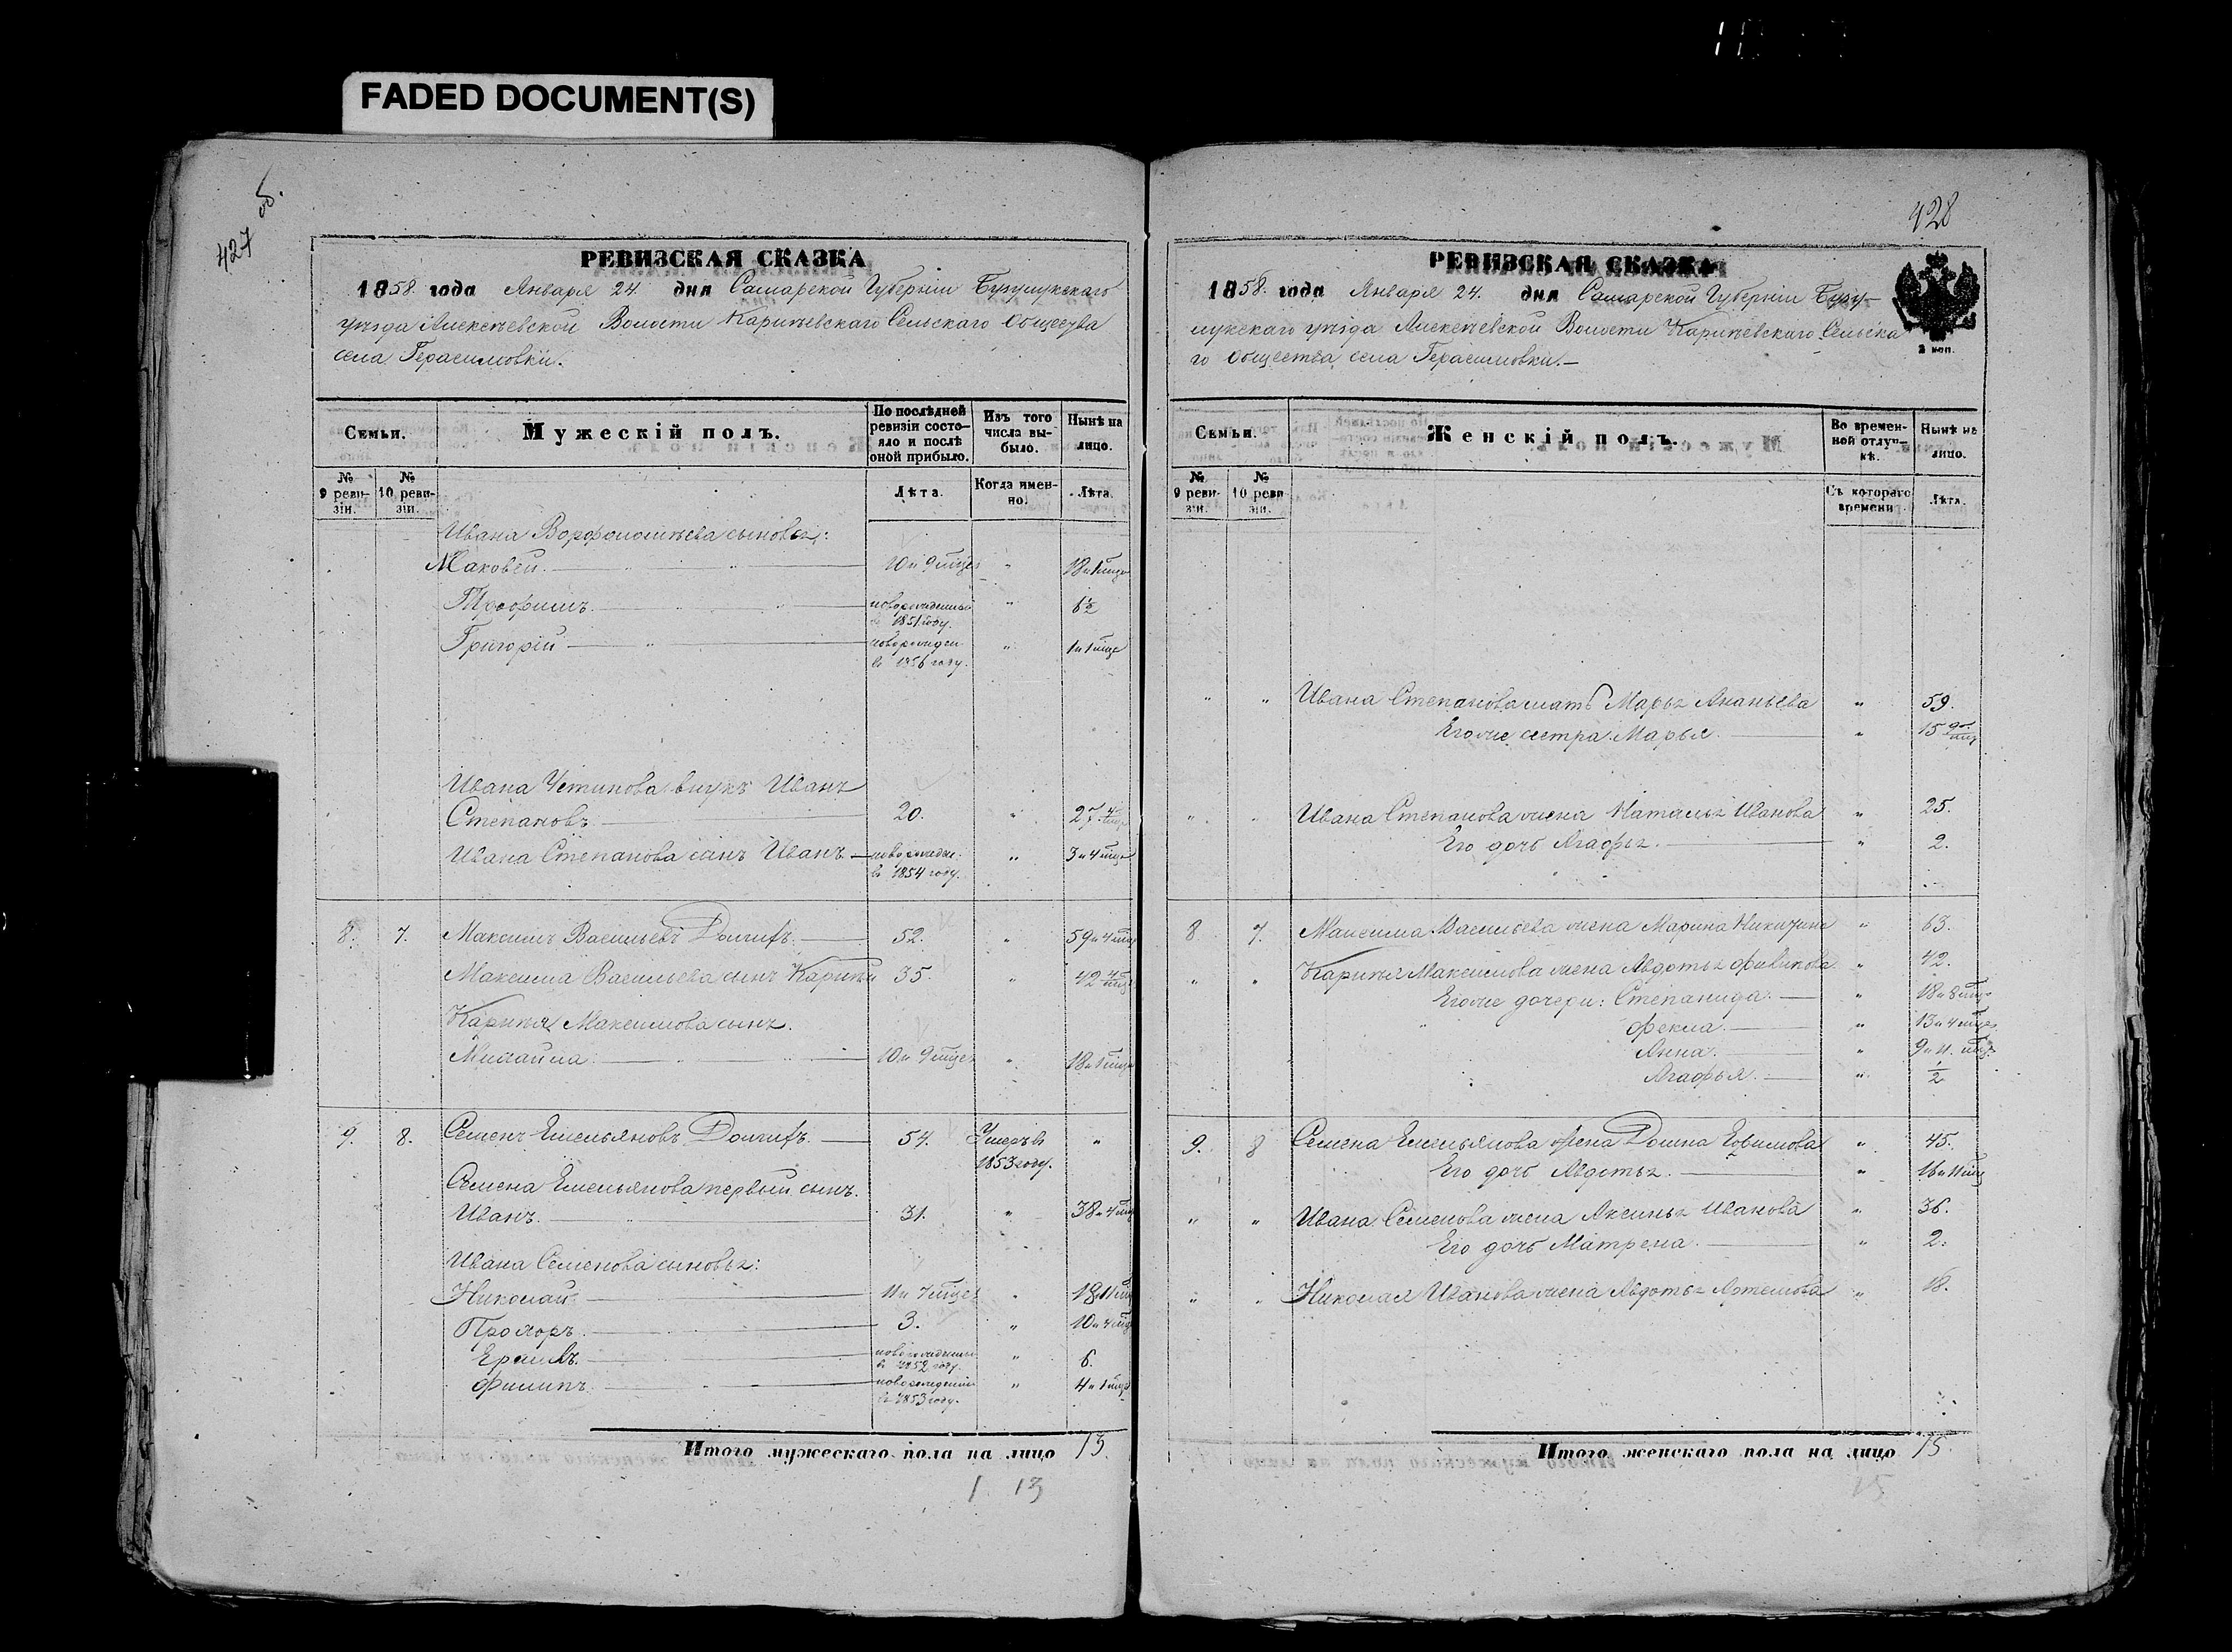 FADED DOCUMENT(S)
427 об.
РЕВИЗСКАЯ СКАЗКА
1858. года Января 24. дня Самарской Губерніи Бузулукскаго
уѣзда Алексѣевской Волости Карпѣевскаго Сельскаго Общества
села Герасимовки.
Семьи.
Мужескій полъ.
По послѣдней ревизіи состояло и послѣ оной прибыло.
Изъ того числа выбыло.
Нынѣ на лицо.
№ 9 ревизіи.
№ 10 ревизіи.
Лѣта.
Когда именно.
Лѣта.
Ивана Ворфоломѣева сыновья:
Маковей. 10 и 9 мцев " 18 и 1 мцъ
Трофимъ новорожденный в 1851 году. " 6½
Григорій новорожден в 1856 году. " 1 и 1 мцъ
Ивана Устинова внукъ Иванъ
Степановъ 20. " 27. 4/мца
Ивана Степанова сынъ Иванъ новорожден: в 1854 году. " 3 и 4 мца
8. 7. Максимъ Васильевъ Долгихъ. 52. " 59 и 4 мца
Максима Васильева сынъ Карпѣй 35. " 42 4/мца
Карпѣя Максимова сынъ.
Михайла 10 и 9 мцев " 18 и 1 мцъ
9. 8. Семенъ Емельяновъ Долгихъ. 54. Умеръ в 1853 году. "
Семена Емельянова первый сынъ.
Иванъ. 31. " 38 и 4 мца
Ивана Семенова сыновья:
Николай 11 и 7 мцев " 18 и 11 мц
Прохоръ. 3. " 10 и 4 мца
новорожденный в 1852 году. " 6.
Филипъ новорожденный в 1853 году. " 4 и 1 мцъ
Итого мужескаго пола на лицо 13.
1 13
428
РЕВИЗСКАЯ СКАЗКА
1858. года Января 24. дня Самарской Губерніи Бузу-
лукскаго уѣзда Алексѣевской Волости Карпѣевскаго Сельска
го Общества села Герасимовки.
2 коп.
Семьи.
Женскій полъ.
Во временной отлучкѣ.
Нынѣ на лицо.
№ 9 ревизіи.
№ 10 ревизіи.
Съ котораго времени
Лѣта.
" " Ивана Степанова мать Марья Ананьева " 59.
Егоже сестра Марья " 15 9/мц
" " Ивана Степанова жена Наталья Иванова " 25.
Его дочь Агафья. " 2.
8 7. Максима Васильева жена Марина Никитина " 63.
" " Карпѣя Максимова жена Авдотья " 42.
Егоже дочери: Степанида. " 18 и 8 мце
Фекла. " 13 и 4 мца
Анна. " 9 и 11. мце
Агафья. " ½
9. 8 Семена Емельянова жена Домна Ефимова " 45.
Его дочь Авдотья. " 16 и 11 мце
" " Ивана Семенова жена Аксинья Иванова " 36.
Его дочь Матрена " 2.
" " Николая Иванова жена Авдотья Артемьева " 18.
Итого женскаго пола на лицо 15.
15